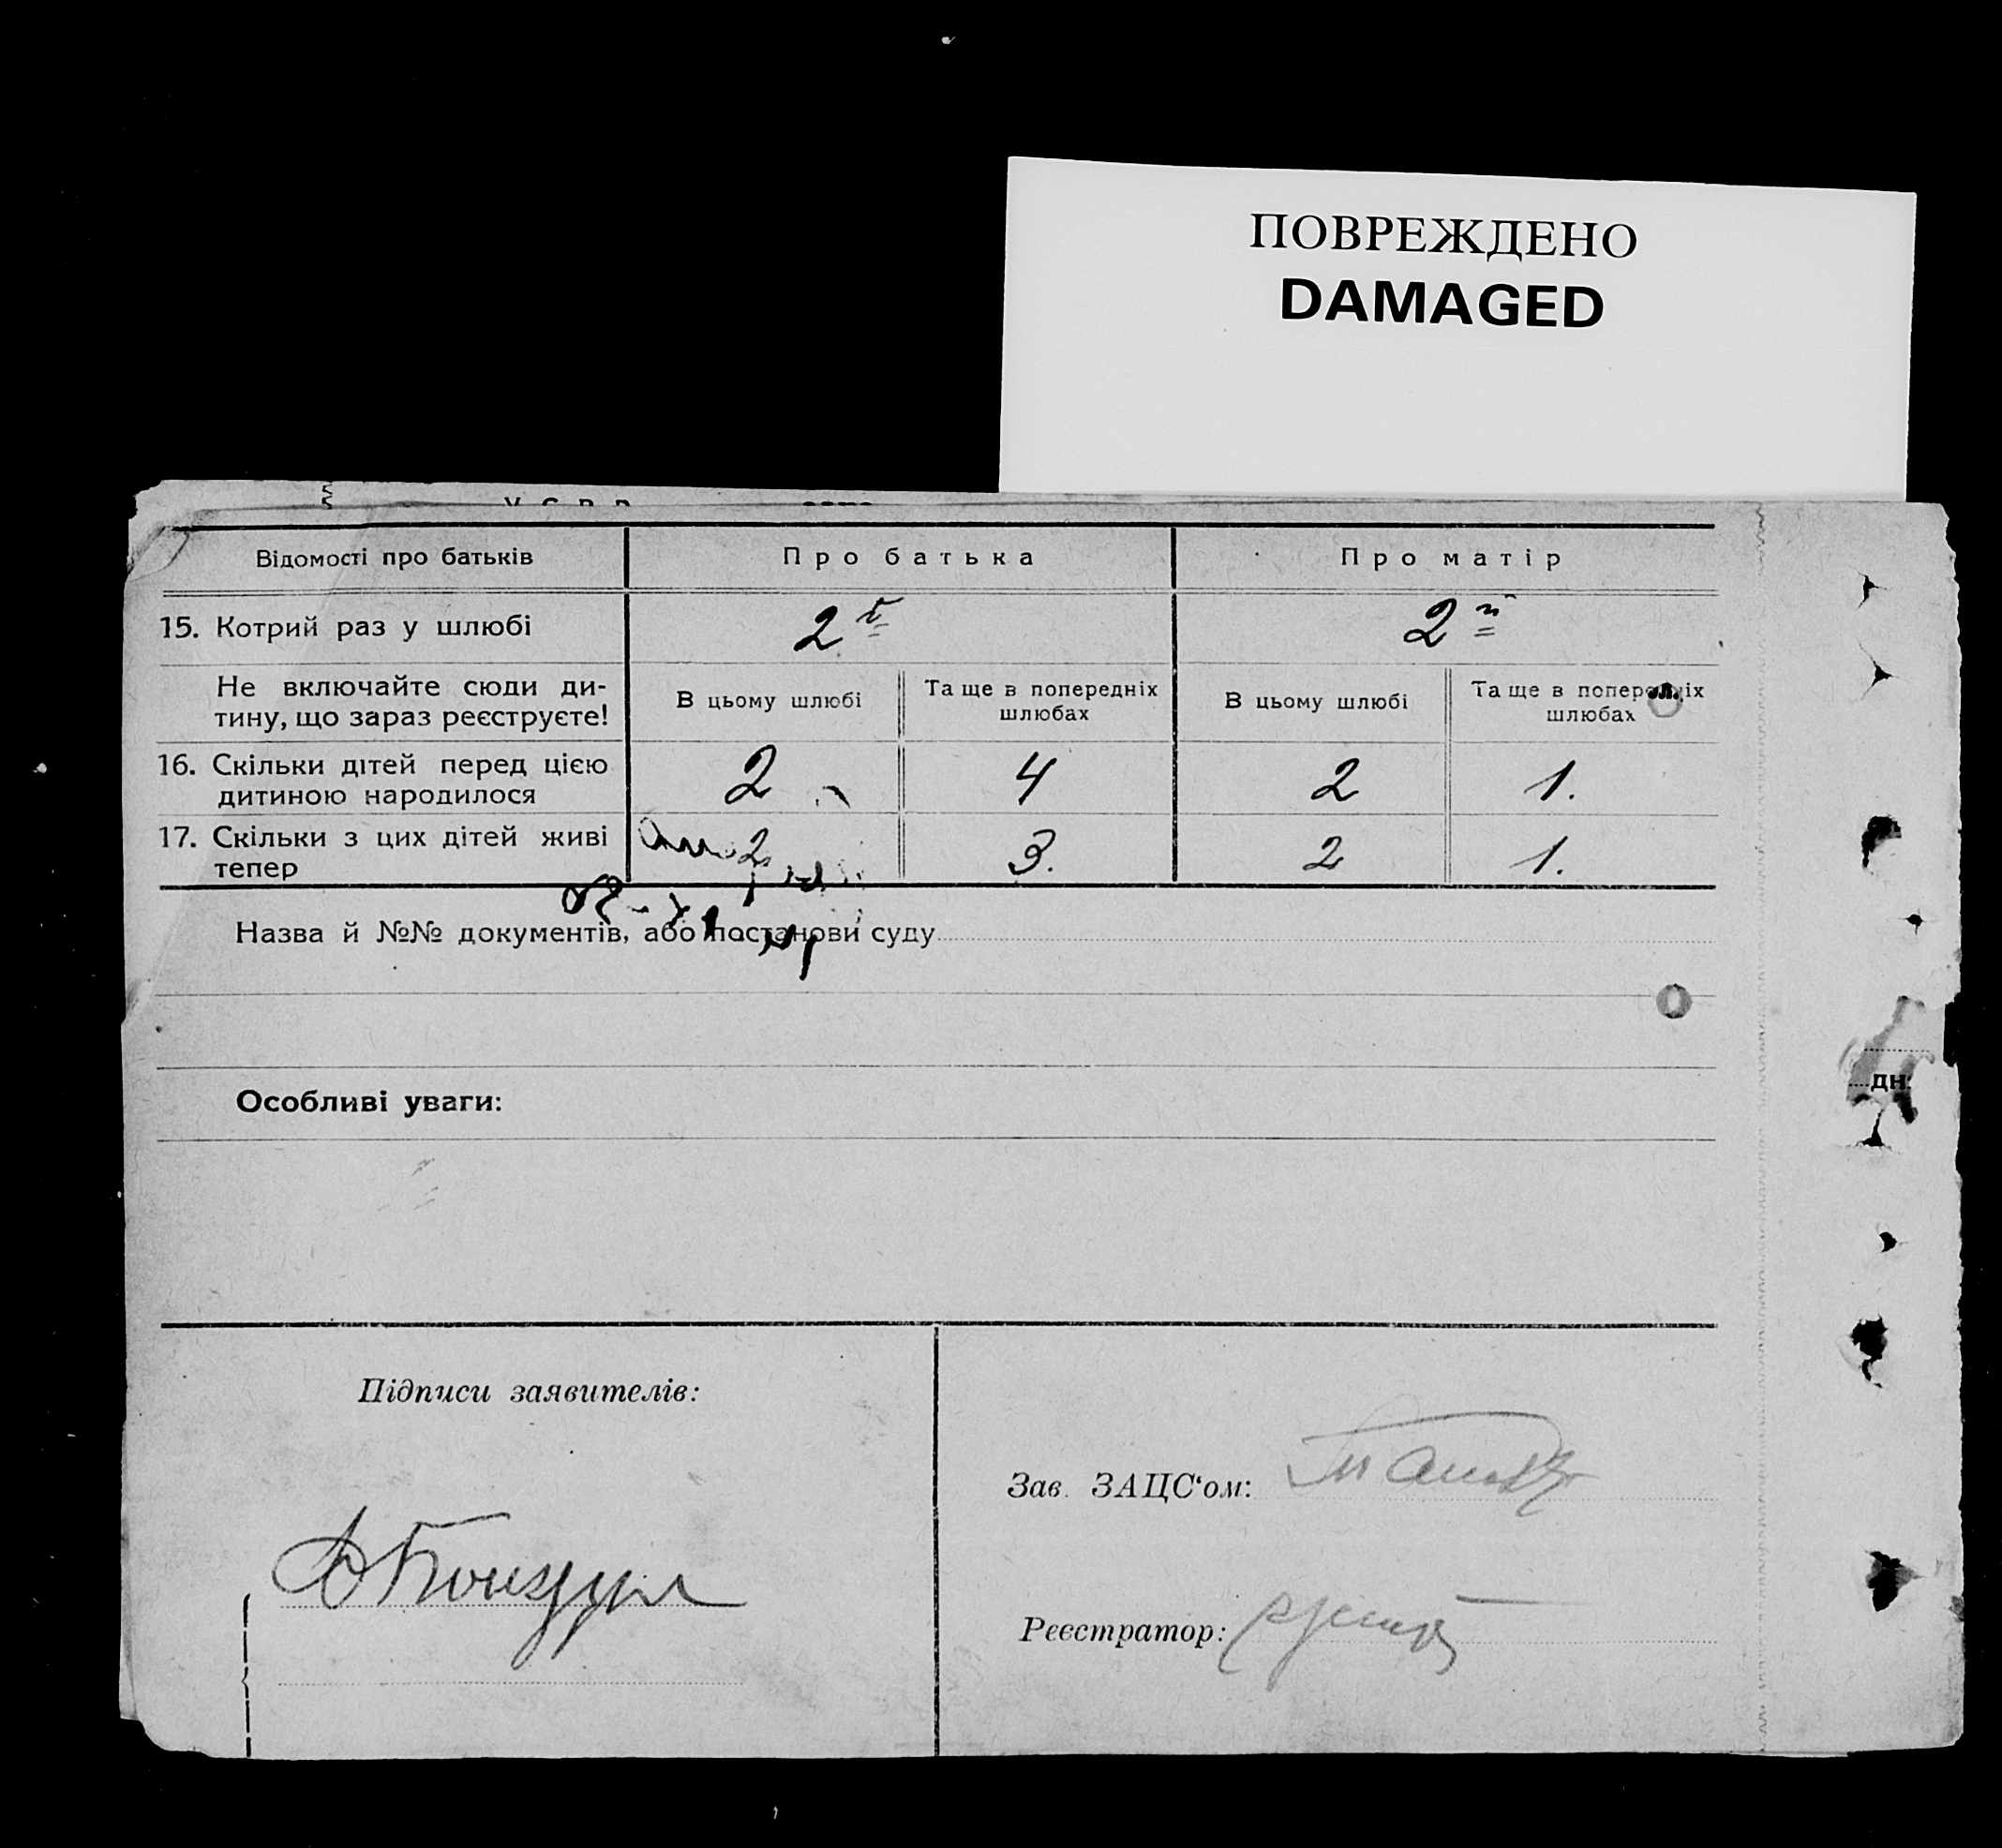 ПОВРЕЖДЕНО
DAMAGED
Відомості про батьків Про батька Про матір
15. Котрий раз у шлюбі 2й 2й
Не включайте сюди ди-
тину, що зараз реєструєте!
В цьому шлюбі Та ще в попередніх
шлюбах
В цьому шлюбі Та ще в попередніх
шлюбах
16. Скільки дітей перед цією
дитиною народилося
2 4 2 1.
17. Скільки з цих дітей живі
тепер
2 3. 2 1.
Назва й №№ документів, або постанови суду
дн.
Особливі уваги:
Підписи заявителів:
Зав. ЗАЦС‘ом:
Реєстратор: